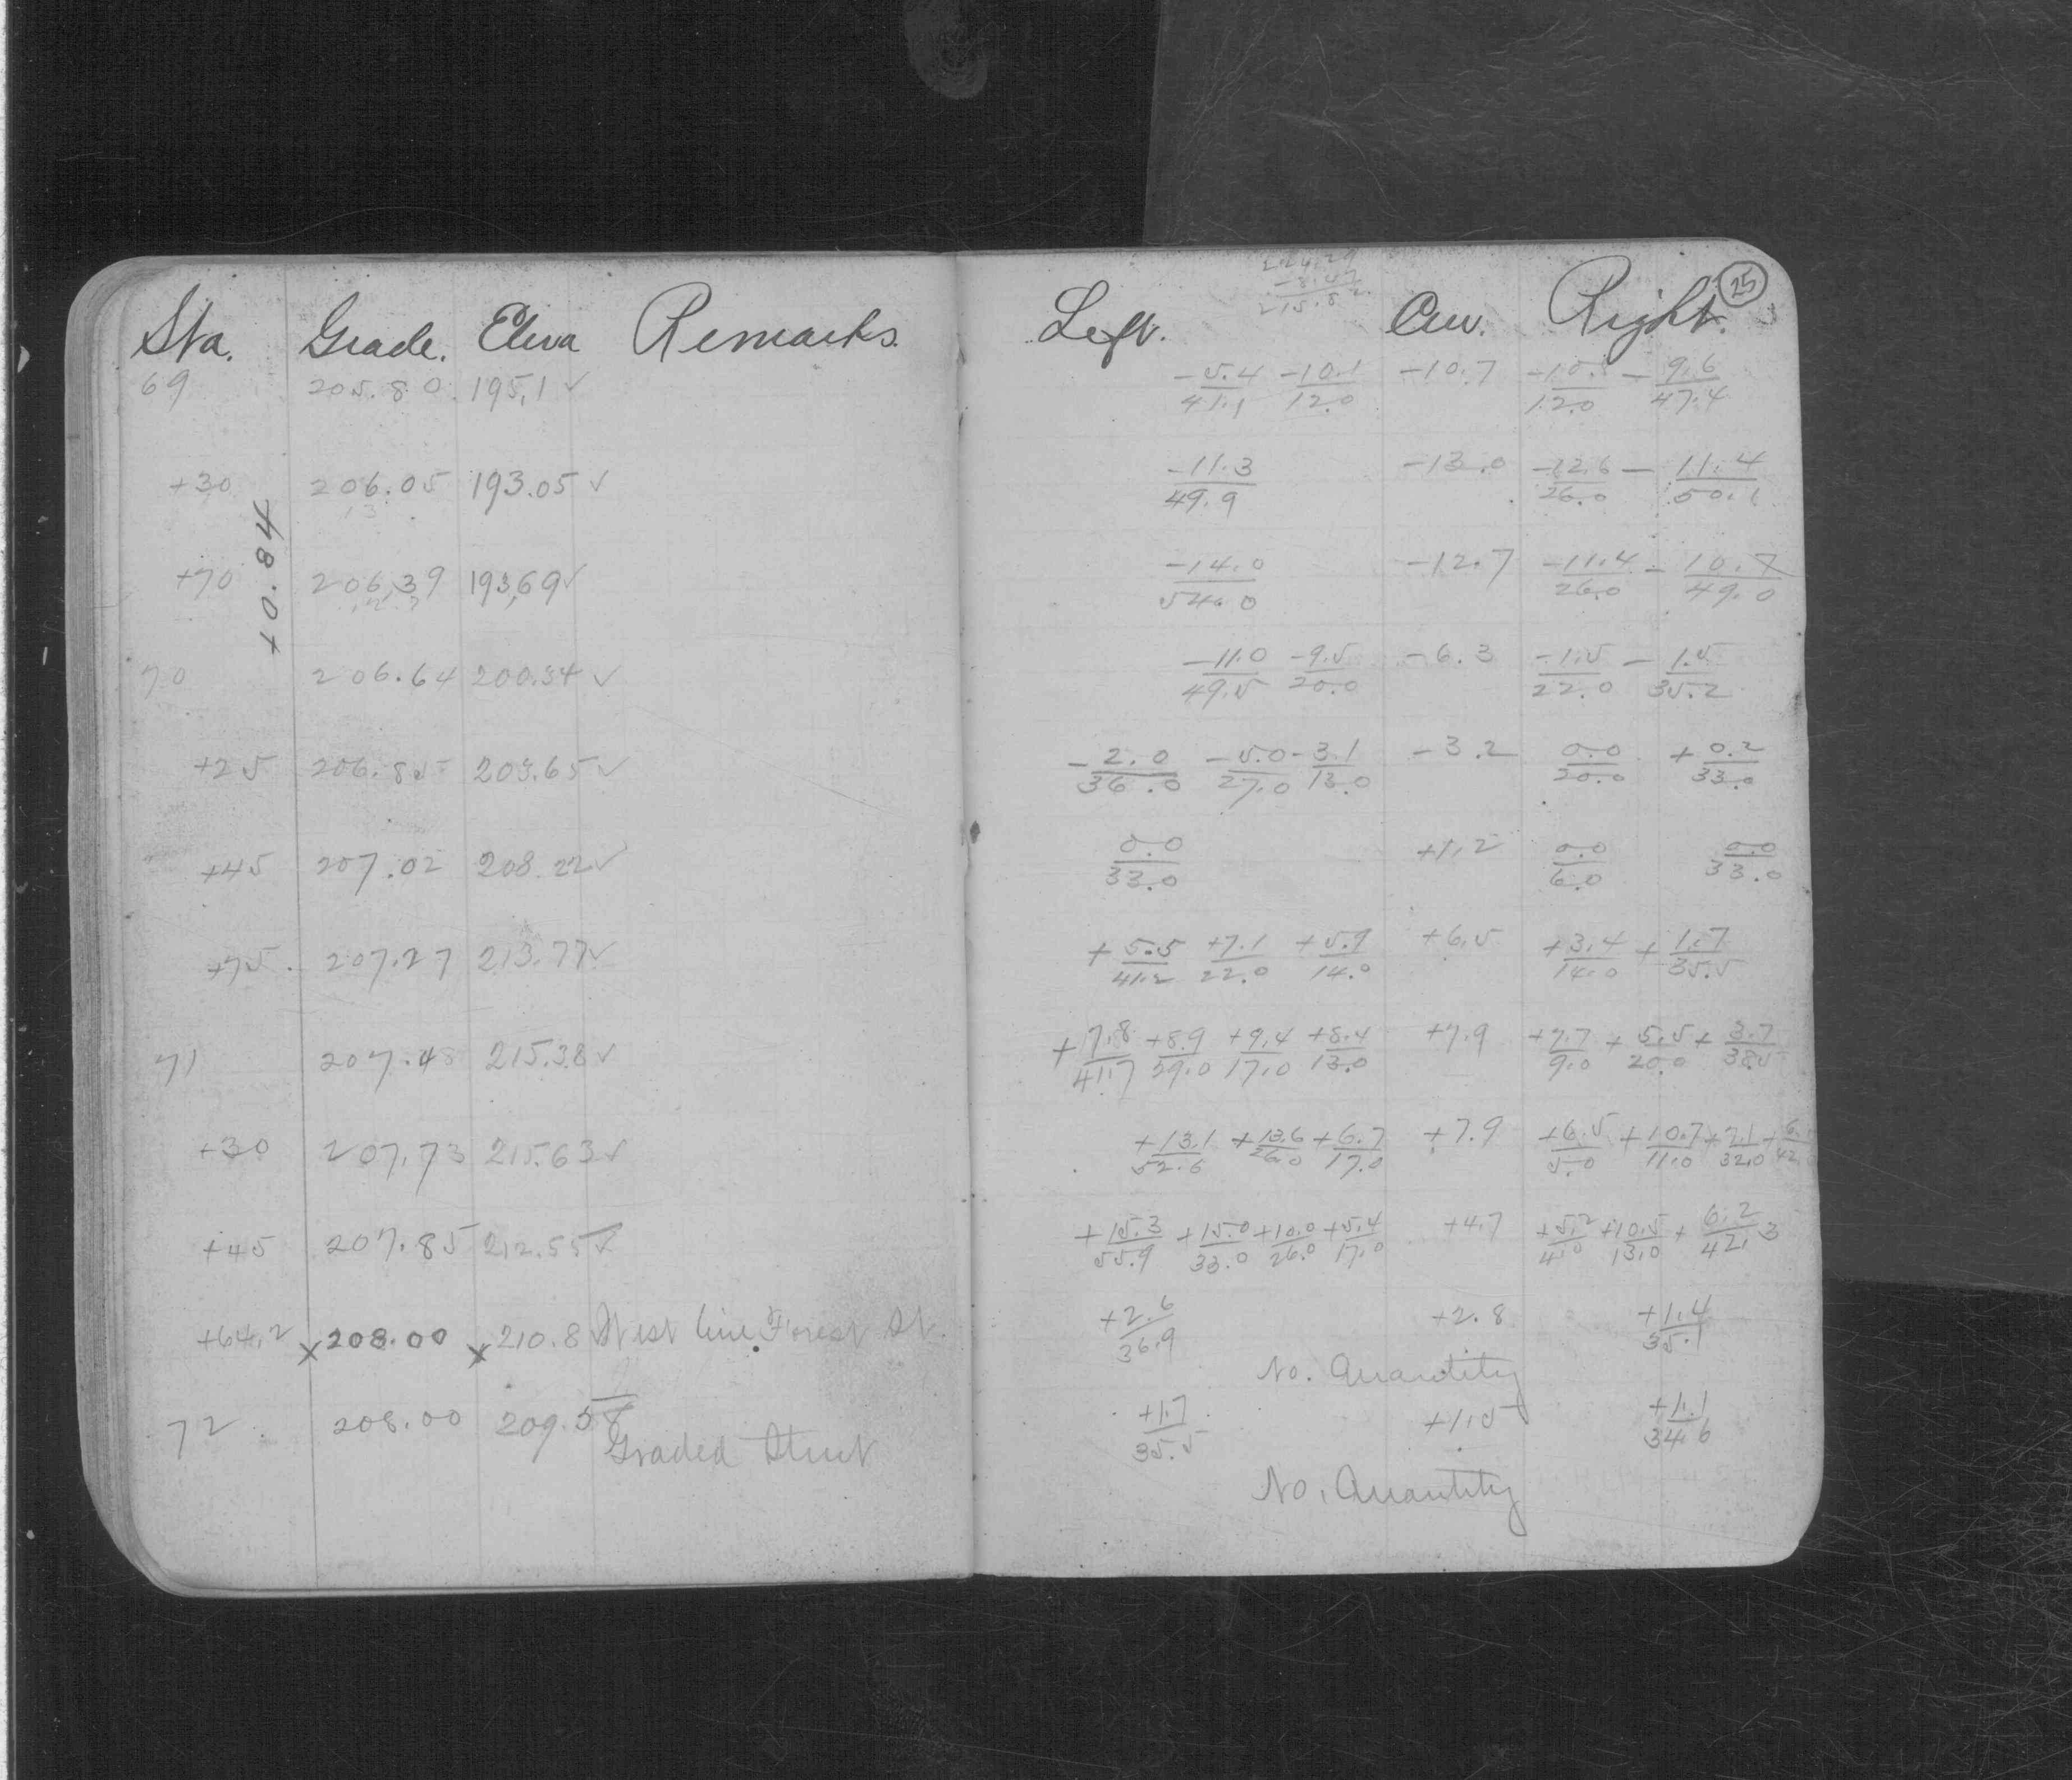 Sta. Grade. Eleva Remarks.
69 205.80 195,1 ✓
+30 206.05 193.05 ✓
+70 206,39 193,69 ✓
+0.84
70 206.64 200.34 ✓
+25 206.85 203.65 ✓
+45 207.02 208.22 ✓
+75. 207.27 213.77 ✓
71 207.48 215.38 ✓
+30 207.73 215.63 ✓
+45 207.85 212.55 ✓
+64.2 x 208.00 x 210.8 West line Forest St.
72. 208.00 209.5
Graded Street
25
224.29
-8.47
215.82
Left. Cen. Right.
-5.4/41.1 -10.1/12.0 -10.7 /12.0 -9.6/47.4
-11.3/49.9 -13.0 -12.6/26.0 -11.4/50.1
-14.0/54.0 -12.7 -11.4/26.0 -10.7/49.0
-11.0/49.5 -9.5/20.0 -6.3 -1.5/22.0 -1.5/35.2
-2.0/36.0 -5.0/27.0 -3.1/13.0 -3.2 0.0/20.0 +0.2/33.0
0.0/33.0 +1.2 0.0/6.0 0.0/33.0
+5.5/41.2 +7.1/22.0 +5.9/14.0 +6.5 +3.4/14.0 +1.7/35.5
+7.8/41.7 +8.9/29.0 +9.4/17.0 +8.4/13.0 +7.9 +7.7/9.0 +5.5/20.0 +3.7/38.5
+13.1/52.6 +13.6/26.0 +6.7/17.0 +7.9 +6.5/5.0 +10.7/11.0 +7.1/32.0
+15.3/55.9 +15.0/33.0 +10.0/26.0 +5.4/17.0 +4.7 +5.2/4.0 +10.5/13.0 +6.2/42.3
+2.6/36.9 +2.8 +1.4/35.1
No. Quantity
+1.7/35.5 +1.5 +1.1/34.6
No. Quantity